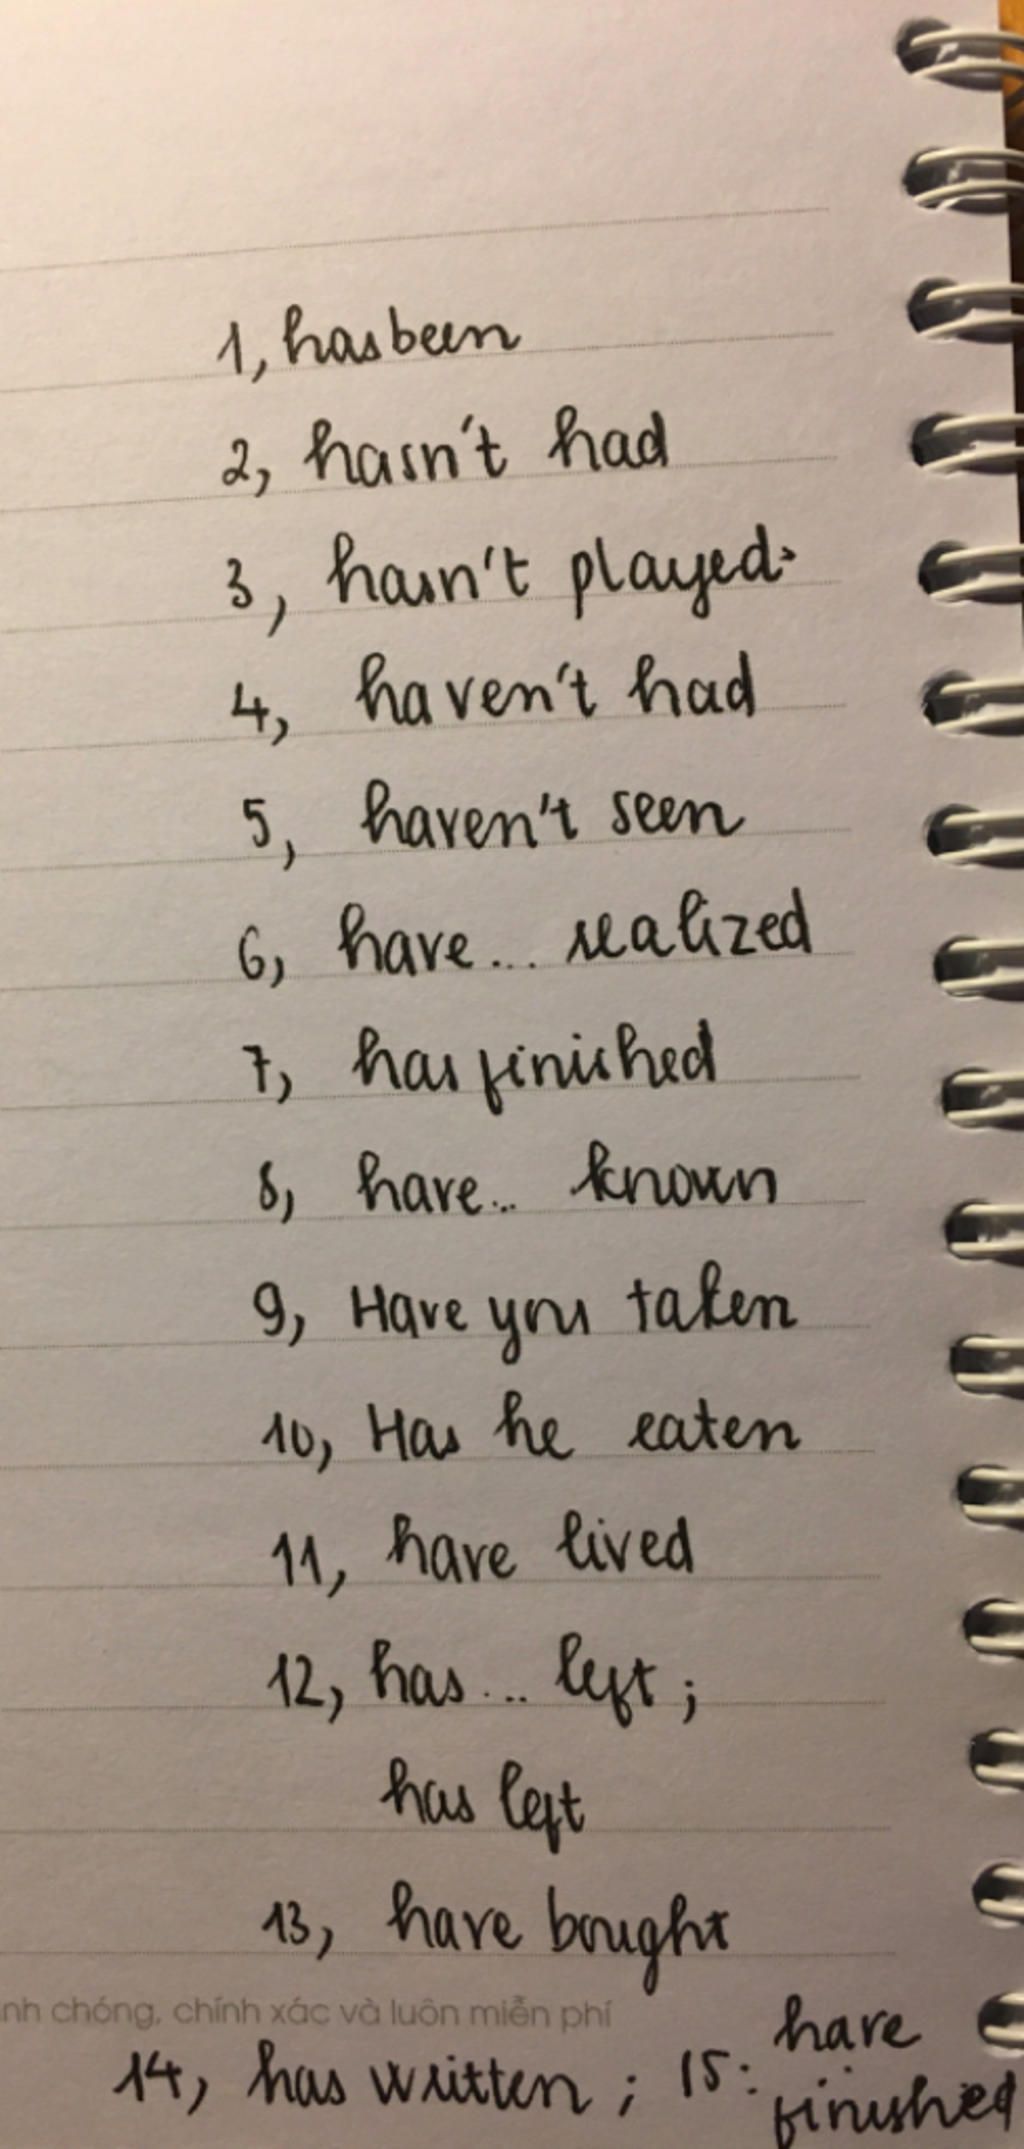 1, has been
2, hasn't had
3, hasn't played.
4, haven't had
5, haven't seen
6, have... realized
7, has finished
8, have... known
9, Have you taken
10, Has he eaten
11, have lived
12, has ... left;
has left
13, have bought
nh chóng, chính xác và luôn miễn phí
14, has written ; 15: have
finished